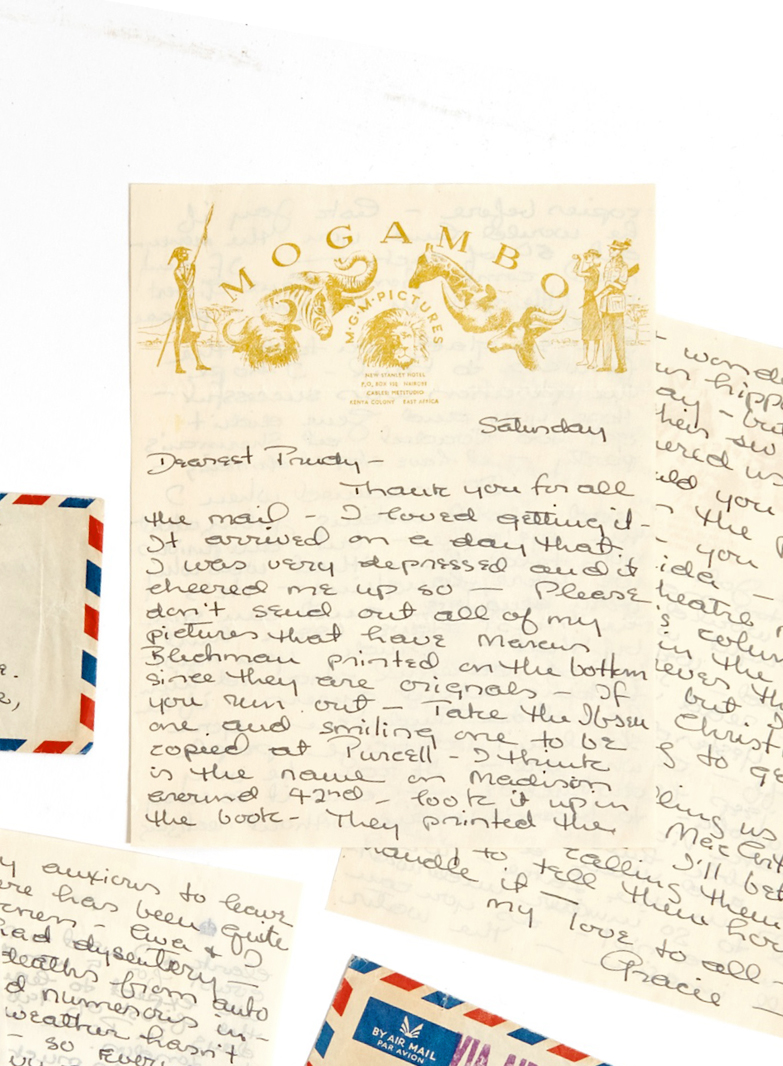 MOGAMBO
M·G·M·PICTURES
NEW STANLEY HOTEL
P.O. BOX NAIROBI
CABLES: METSTUDIO
KENYA COLONY EAST AFRICA
Saturday
Dearest Prudy—
Thank you for all
the mail — I loved getting it-
It arrived on a day that
I was very depressed and it
cheered me up so — Please
don't send out all of my
pictures that have Marcus
Blechman printed on the bottom
since they are originals — If
you run out — Take the Ibsen
one and smiling one to be
copied at Purcell - I think
is the name on Madison
around 42nd — look it up in
the book — They printed the
hipp
ay — but
their
you
the
you
ida —
heatre
's colum
in the
but I
Christ
g to ge
ling us
calling them
I'll bet
handle it — to tell them how
my love to all —
Gracie —
y anxious to leave
ere has been quite
Ava & I
had dysentery —
deaths from auto
d numerous in-
weather hasn't
— so every
BY AIR MAIL
PAR AVION
VIA AIR